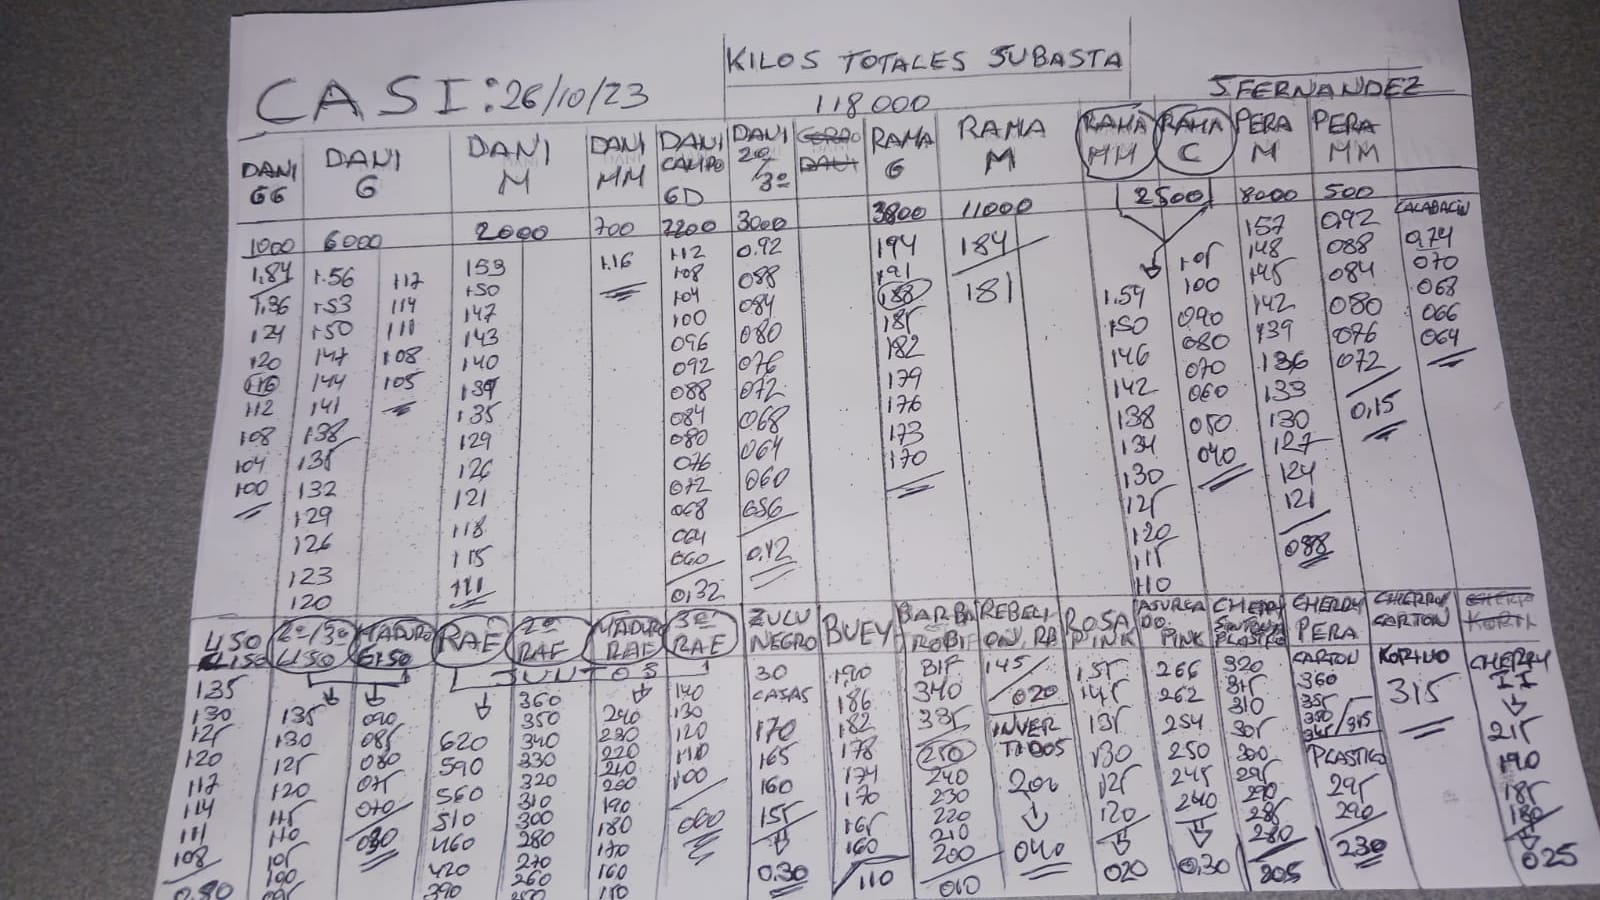 KILOS TOTALES SUBASTA
CASI: 26/10/23
118000
J.FERNANDEZ
DANI GG DANI G DANI M DANI MM DANI CAMPO GD DANI 2ª/3ª RAMA G RAMA M RAMA MM RAMA C PERA M PERA MM
1000 6000 2000 700 2200 3000 3800 11000 2500 8000 500 CALABACIN
1.84 1.56 117 153 1.16 112 0.92 194 184 1.54 101 157 0,92 0,74
1,36 1.53 114 150 108 088 191 181 150 100 148 088 070
124 150 111 147 104 084 188 146 090 145 084 068
120 147 108 143 100 080 185 142 080 142 080 066
116 144 105 140 096 076 182 138 070 139 076 064
112 141 092 072 179 134 060 136 072
108 138 135 088 068 176 130 050 133 0,15
104 135 129 084 064 173 125 040 130
100 132 126 080 060 170 120 127
129 121 076 056 115 124
126 118 072 0,12 110 121
123 115 068 088
120 111 064
060
0,32
LISO 2ª/3ª LISO MADURO LISO RAF 2ª RAF MADURO RAF 3ª RAF ZULU NEGRO BUEY BARBA ROBIF REBELION, RB ROSA PINK ASURCADO PINK CHERRY PLASTICO CHERRY PERA CHERRY CARTON
JUNTOS
135 135 090 620 360 240 140 30 CASAS 190 BIF 145 155 266 320 CARTON KORINO CHERRY
130 130 085 590 350 230 130 170 186 340 020 145 262 315 360 315 215
125 125 080 560 340 220 120 165 182 335 INVERTIDOS 135 254 310 355 190
120 120 075 510 330 210 110 160 178 250 200 130 250 305 350 185
117 115 070 460 320 200 100 155 174 240 040 125 245 300 345/315 180
114 110 030 420 310 190 060 0.30 170 230 120 240 295 PLASTICO 025
111 105 390 300 180 165 220 020 0,30 290 295
108 100 280 170 160 210 285 290
0,80 095 270 160 110 200 280 230
260 150 010 205